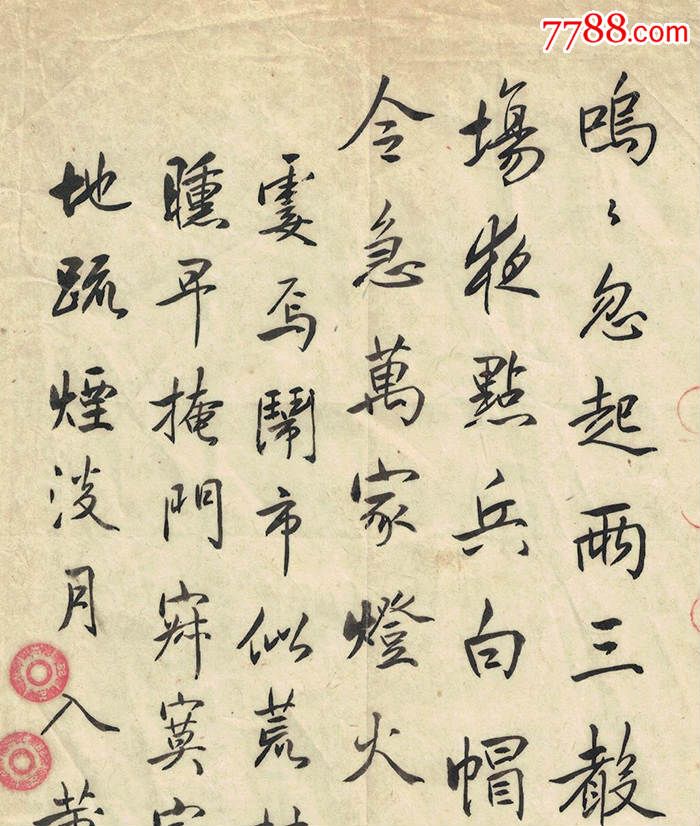 7788.com
嗚〻忽起兩三聲
場夜點兵白帽
令急萬家燈火
霎焉鬧市似荒
曛早掩門寂寞
地疏煙淡月入